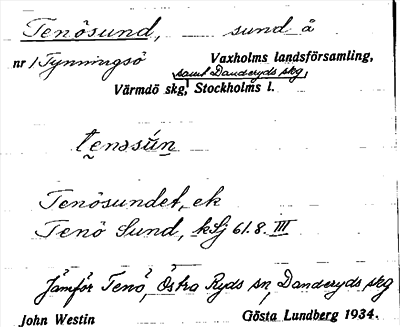 Tenösund, sund å
nr 1 Tynningsö Vaxholms landsförsamling,
samt Danderyds skg,
Värmdö skg, Stockholms l.
tenəsún
Tenösundet, ek
Tenö Sund, kSj 61.8. III
Jämför Tenö, Östra Ryds sn, Danderyds skg
John Westin Gösta Lundberg 1934.